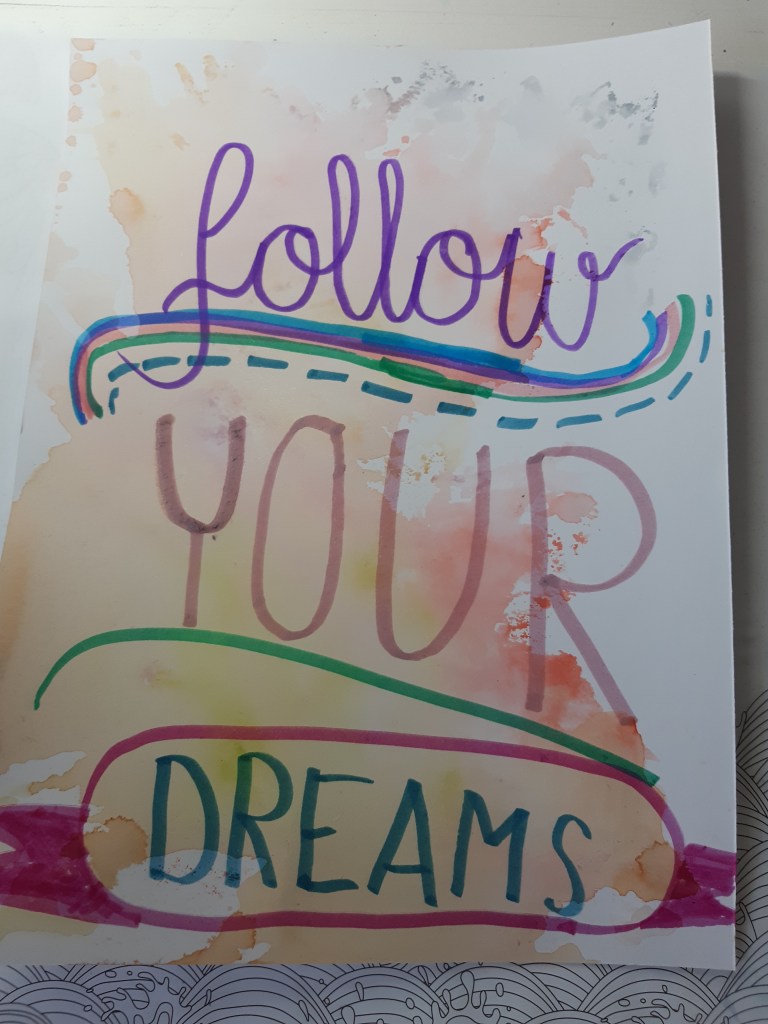 follow
YOUR
DREAMS